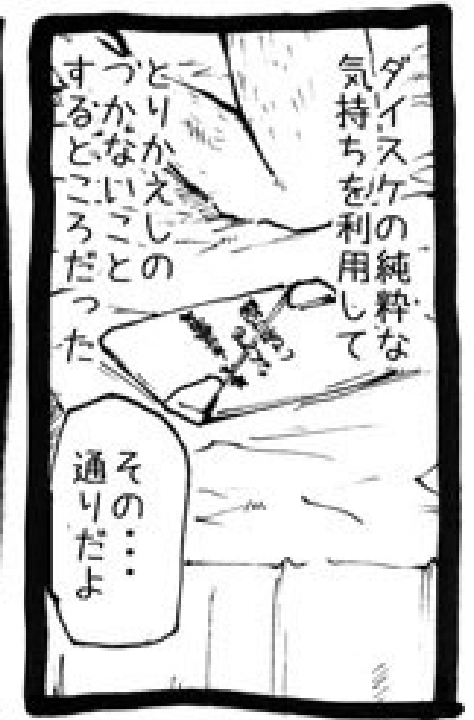 ダイスケの純粋な
気持ちを利用して
とりかえしの
づかないこと
するところだった
その・・・
通りだよ